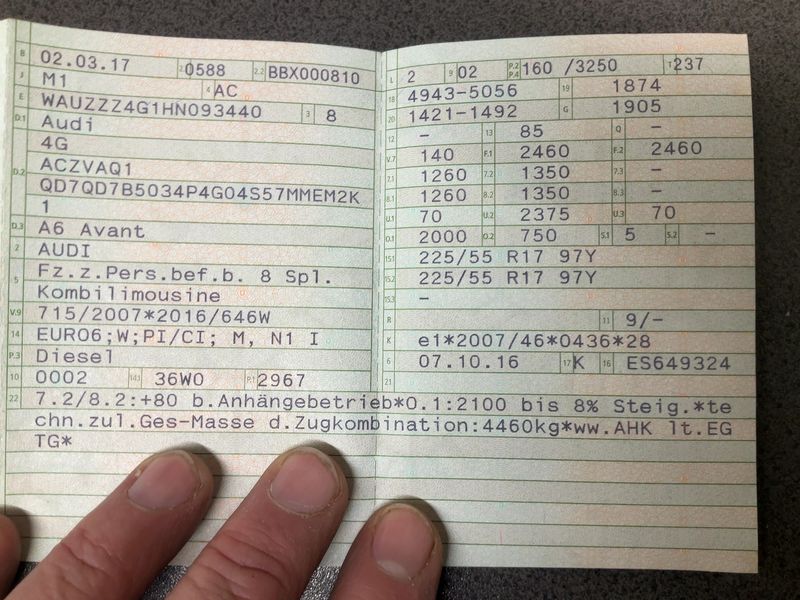 B 02.03.17 2.1 0588 2.2 BBX000810
J M1 4 AC
E WAUZZZ4G1HN093440 3 8
D.1 Audi
4G
D.2 ACZVAQ1
QD7QD7B5034P4G04S57MMEM2K
1
D.3 A6 Avant
2 AUDI
5 Fz.z.Pers.bef.b. 8 Spl.
Kombilimousine
V.9 715/2007*2016/646W
14 EURO6;W;PI/CI; M, N1 I
P.3 Diesel
10 0002 14.1 36W0 P.1 2967
L 2 9 02 P.2 P.4 160 /3250 T 237
18 4943-5056 19 1874
20 1421-1492 G 1905
12 – 13 85 Q –
V.7 140 F.1 2460 F.2 2460
7.1 1260 7.2 1350 7.3 –
8.1 1260 8.2 1350 8.3 –
U.1 70 U.2 2375 U.3 70
O.1 2000 O.2 750 S.1 5 S.2 –
15.1 225/55 R17 97Y
15.2 225/55 R17 97Y
15.3 –
R 11 9/–
K e1*2007/46*0436*28
6 07.10.16 17 K 16 ES649324
21
22 7.2/8.2:+80 b.Anhängebetrieb*O.1:2100 bis 8% Steig.*te
chn.zul.Ges-Masse d.Zugkombination:4460kg*ww.AHK lt.EG
TG*